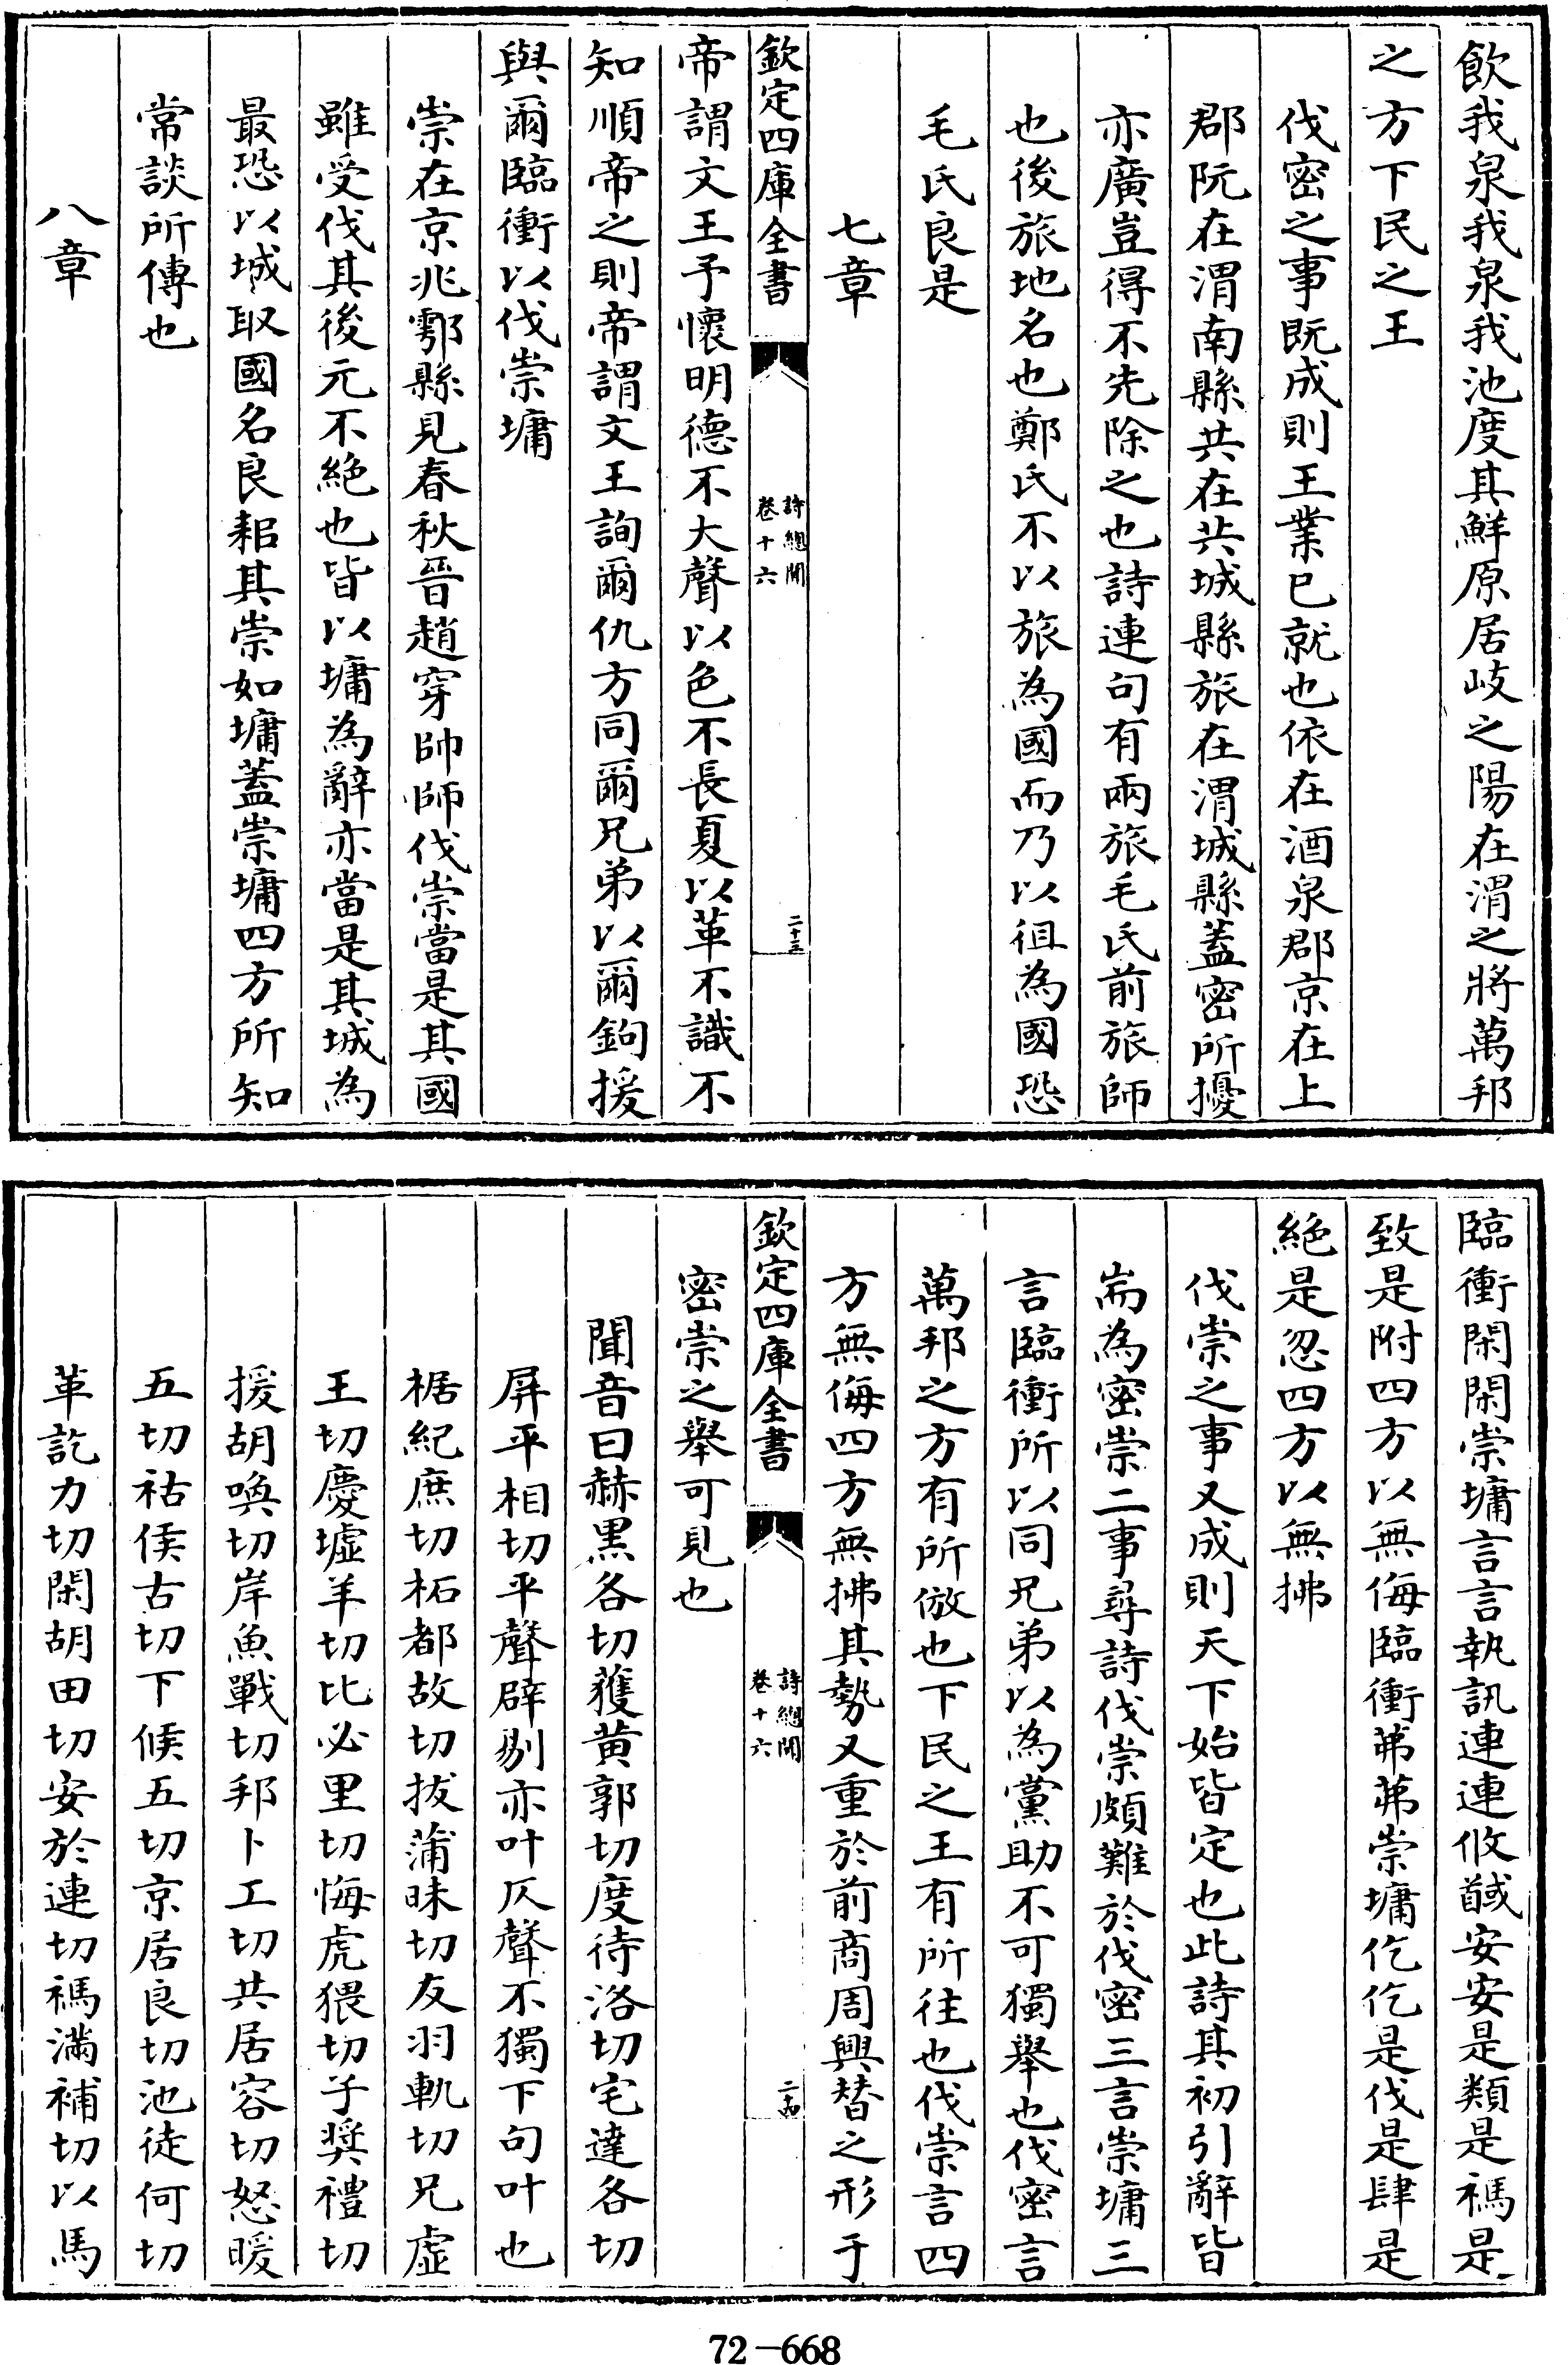 飲我泉我泉我池度其鮮原居岐之陽在渭之將萬邦
之方下民之王
伐密之事既成則王業已就也依在酒泉郡京在上
郡阮在渭南縣共在共城縣旅在渭城縣蓋密所擾
亦廣豈得不先除之也詩連句有兩旅毛氏前旅師
也後旅地名也鄭氏不以旅為國而乃以徂為國恐
毛氏良是
七章
欽定四庫全書
詩總聞
卷十六
二十三
帝謂文王予懷明德不大聲以色不長夏以革不識不
知順帝之則帝謂文王詢爾仇方同爾兄弟以爾鉤援
與爾臨衝以伐崇墉
崇在京兆鄠縣見春秋晉趙穿帥師伐崇當是其國
雖受伐其後元不絕也皆以墉為辭亦當是其城為
最恐以城取國名良耜其崇如墉蓋崇墉四方所知
常談所傳也
八章
臨衝閑閑崇墉言言執訊連連攸馘安安是類是禡是
致是附四方以無侮臨衝茀茀崇墉仡仡是伐是肆是
絕是忽四方以無拂
伐崇之事又成則天下始皆定也此詩其初引辭皆
耑為密崇二事尋詩伐崇頗難於伐密三言崇墉三
言臨衝所以同兄弟以為黨助不可獨舉也伐密言
萬邦之方有所倣也下民之王有所往也伐崇言四
方無侮四方無拂其勢又重於前商周興替之形于
欽定四庫全書
詩總聞
卷十六
二十四
密崇之舉可見也
聞音曰赫黑各切獲黄郭切度待洛切宅達各切
屏平相切平聲辟剔亦叶仄聲不獨下句叶也
椐紀庶切柘都故切拔蒲昧切友羽軌切兄虛
王切慶墟羊切比必里切悔虎猥切子奬禮切
援胡喚切岸魚戰切邦卜工切共居容切怒暖
五切祜侯古切下候五切京居良切池徒何切
革訖力切閑胡田切安於連切禡滿補切以馬
72-668